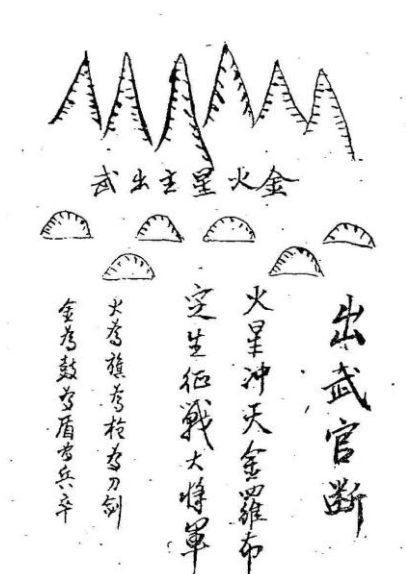 金火星主出武
出武官断
火星冲天金羅布
定生征戰大将軍
火為旗為枪為刀剑
金為鼓為盾為兵卒